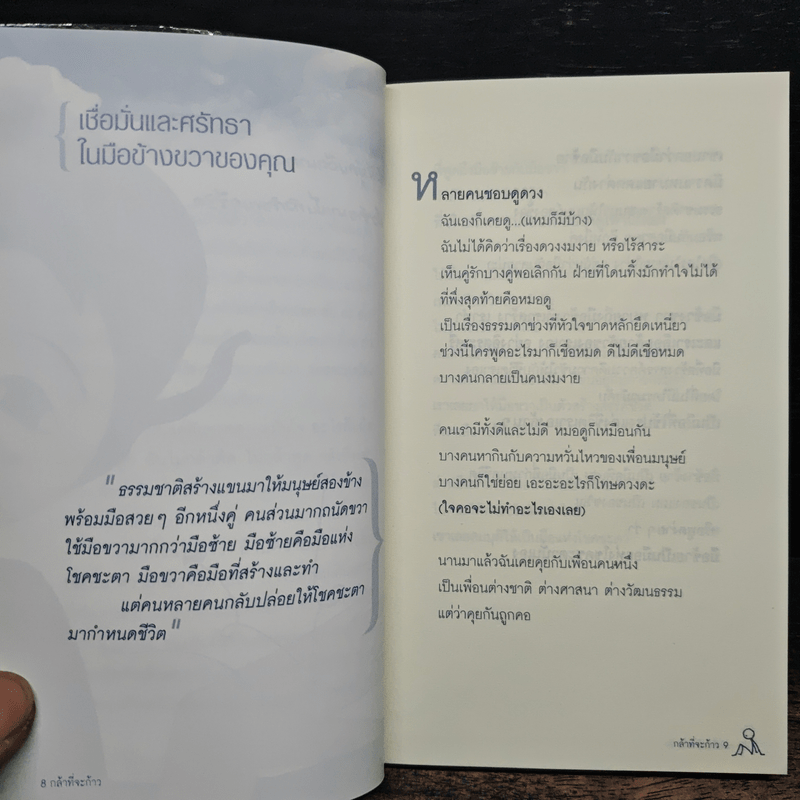 เชื่อมั่นและศรัทธา
ในมือข้างขวาของคุณ
"ธรรมชาติสร้างแขนมาให้มนุษย์สองข้าง
พร้อมมือสวยๆ อีกหนึ่งคู่ คนส่วนมากถนัดขวา
ใช้มือขวามากกว่ามือซ้าย มือซ้ายคือมือแห่ง
โชคชะตา มือขวาคือมือที่สร้างและทำ
แต่คนหลายคนกลับปล่อยให้โชคชะตา
มากำหนดชีวิต"
8 กล้าที่จะก้าว
หลายคนชอบดูดวง
ฉันเองก็เคยดู...(แหมก็มีบ้าง)
ฉันไม่ได้คิดว่าเรื่องดวงงมงาย หรือไร้สาระ
เห็นคู่รักบางคู่พอเลิกกัน ฝ่ายที่โดนทิ้งมักทำใจไม่ได้
ที่พึ่งสุดท้ายคือหมอดู
เป็นเรื่องธรรมดาช่วงที่หัวใจขาดหลักยึดเหนี่ยว
ช่วงนี้ใครพูดอะไรมาก็เชื่อหมด ดีไม่ดีเชื่อหมด
บางคนกลายเป็นคนงมงาย
คนเรามีทั้งดีและไม่ดี หมอดูก็เหมือนกัน
บางคนหากินกับความหวั่นไหวของเพื่อนมนุษย์
บางคนก็ใช่ย่อย เอะอะอะไรก็โทษดวงดะ
(ใจคอจะไม่ทำอะไรเองเลย)
นานมาแล้วฉันเคยคุยกับเพื่อนคนหนึ่ง
เป็นเพื่อนต่างชาติ ต่างศาสนา ต่างวัฒนธรรม
แต่ว่าคุยกันถูกคอ
กล้าที่จะก้าว 9